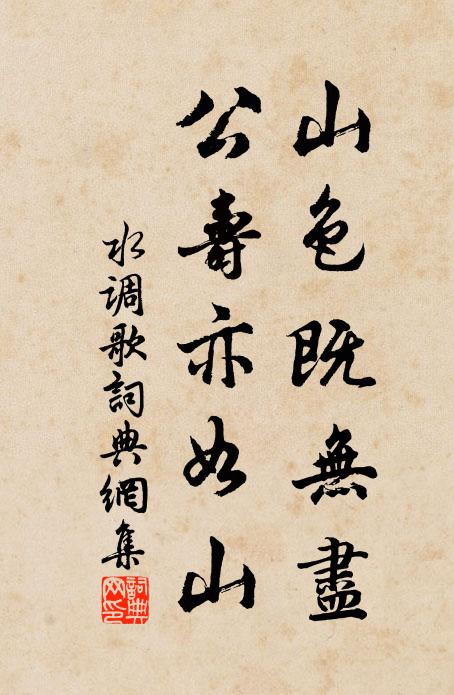 山色既無盡
公壽亦如山
水调歌詞典網集
詞典
网印